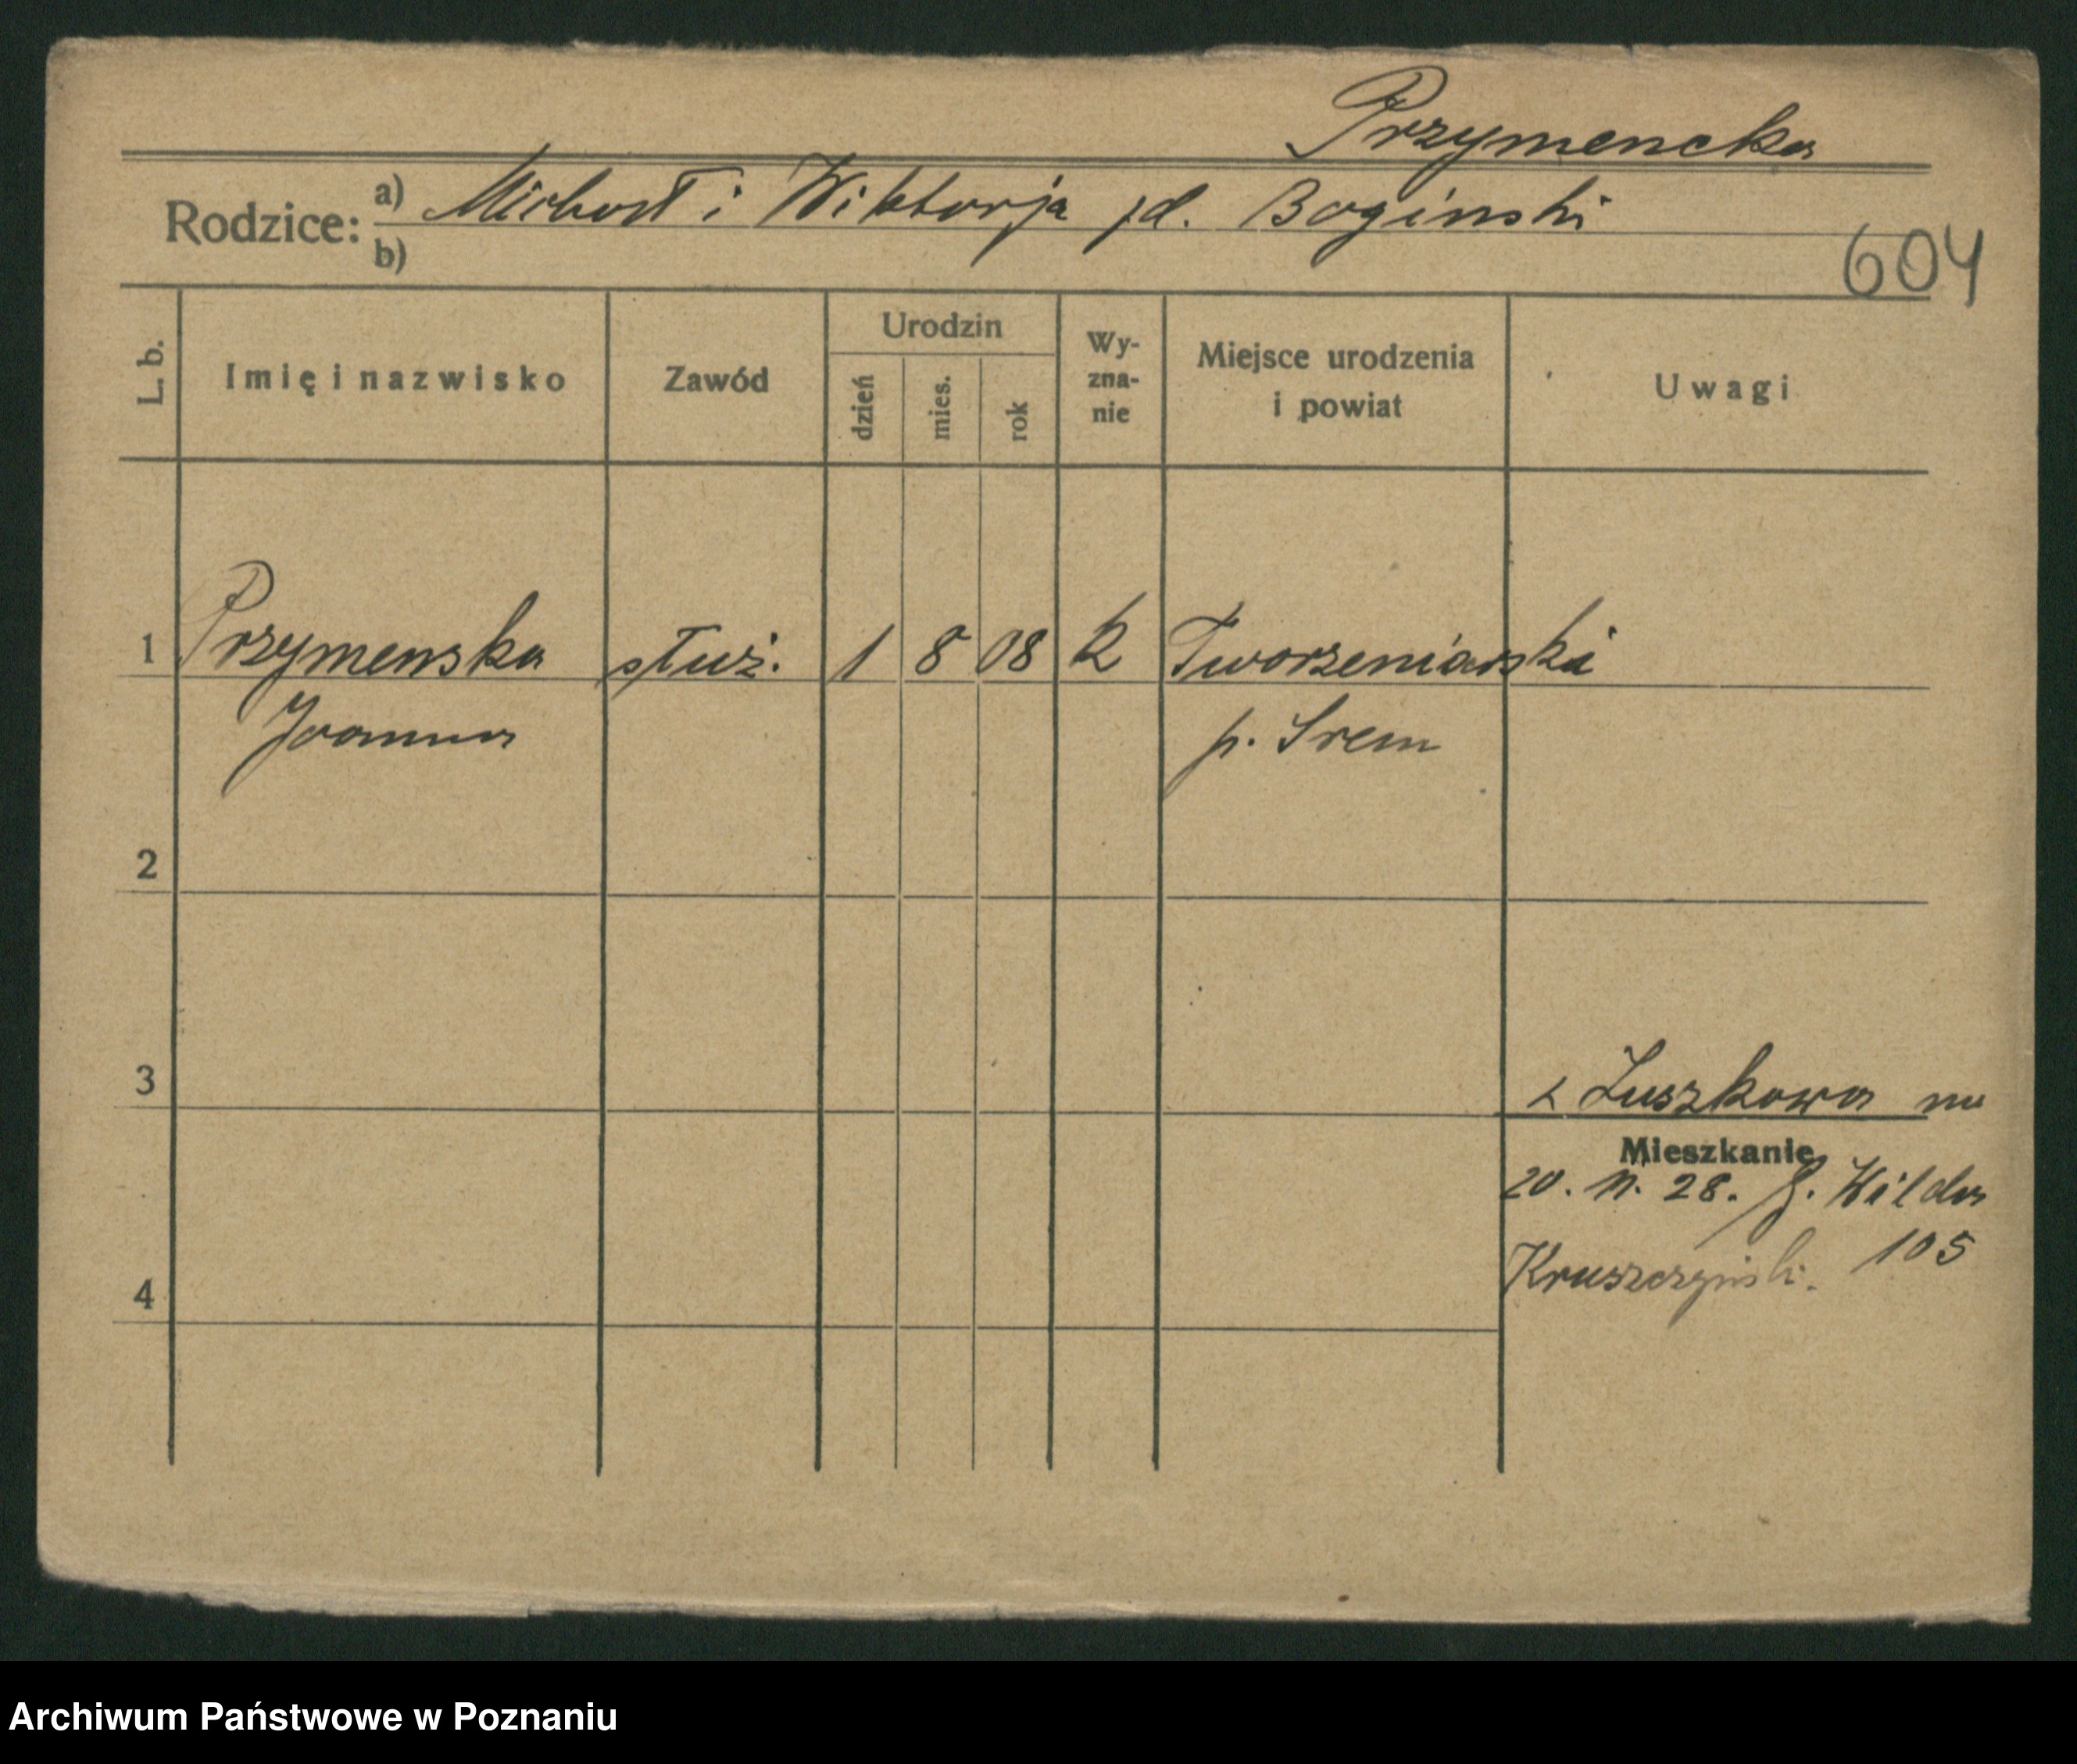 Przymencka
Rodzice: a) Michał i Wiktorja zd. Boginski
b)
604
L. b. Imię i nazwisko Zawód Urodzin dzień mies. rok Wy-zna-nie Miejsce urodzenia i powiat Uwagi
1 Przymenska służ. 1 8 08 k Tworzeniarki
Joanna p. Srem
2
3
z Łuszkowa na
Mieszkanie
20. 11. 28. G. Wilda
105
Kruszczyński.
4
Archiwum Państwowe w Poznaniu